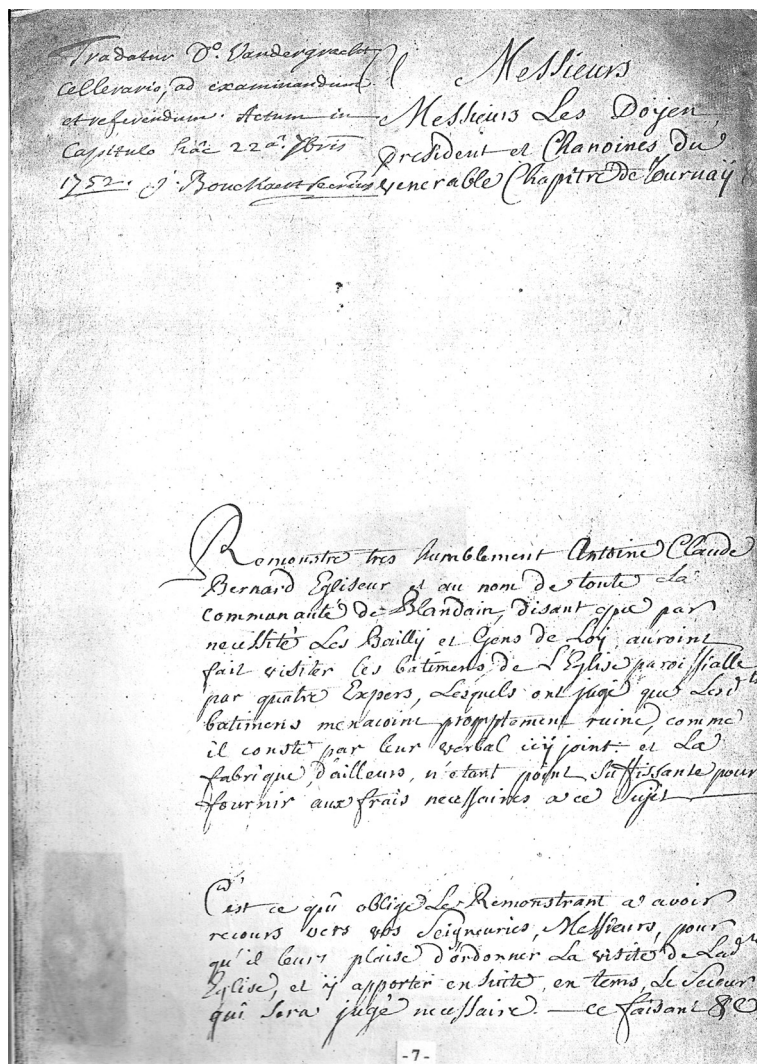 Tradatur D.º Vandergracht
Cellerario, ad examinandum
et referendum. Actum in
Capitulo hâc 22.ª 7bris
1752. J. Bouckaert secrius
Messieurs
Messieurs Les Doÿen,
president et Chanoines du
venerable Chapitre de Turnaÿ
Remonstre tres humblement Antoine Claude
Bernard Egliseur et au nom de toute La
communauté de Blandain, disant que par
necessité Les Bailly et Gens de Loÿ auroint
fait visiter les batimens de L'Eglise paroissialle
par quatre Expers, Lesquels ont jugé que Lesdts
batimens menacoint promptement ruine, comme
il conste par leur verbal icÿ joint. et La
fabrique, d'ailleurs, n'etant point suffissante pour
fournir aux frais necessaires a ce sujet
C'est ce qui oblige Le Remonstrant a avoir
recours vers vos Seigneuries, Messieurs, pour
qu'il leurs plaise d'ordonner La visite de Ladte
Eglise, et ÿ apporter ensuite, en tems, Le Secour
qui sera jugé necessaire. — ce faisant &c
-7-